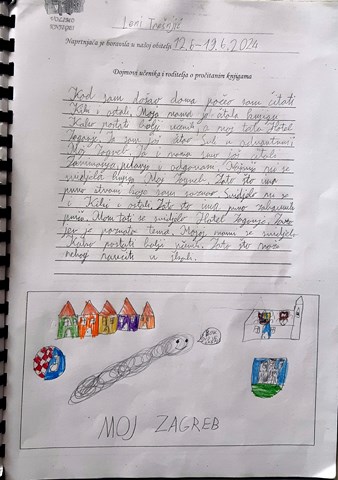 Leni
Naprtnjača je boravila u našoj obitelji 12.6-19.6.2024
Dojmovi učenika i roditelja o pročitanim knjigama
Kad sam došao doma počeo sam čitati
Kiki i ostali. Moja mama je čitala knjigu
Kako postati bolji učenik a moj tata Hotel
Zagorje. Ja sam još čitao Sub u
Moj Zagreb. Ja i mama smo još čitali
Zanimanja, pitanja i odgovori. Najviše mi se
svidjela knjiga Moj Zagreb. Zato što ima
puno stvari koje sam saznao. Svidjelo mi se
i Kiki i ostali. Zato što ima puno zabavnih
priča. Mom tati se svidjelo Hotel Zagorje. Zato
jer je poznata tema. Mojoj mami se svidjelo
Kako postati bolji učenik. Zato što može
nekog naučiti u školi.
MOJ ZAGREB